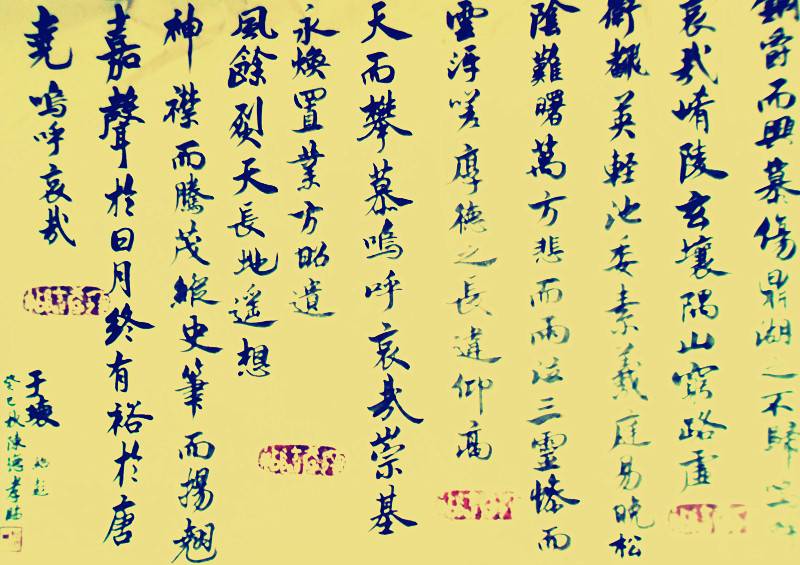 銅爵而興慕傷鼎湖之不歸
哀哉崤陵玄壤隅山窮路虛
衛靡英輕池委素羲庭易晚松
陰難曙萬方悲而雨泣三靈慘而
雲沍嗟厚德之長違仰高
天而攀慕嗚呼哀哉崇基
永煥置業方昭遺
風餘烈天長地遥想
神襟而騰茂縱史筆而揚翹
嘉聲於日月終有裕於唐
堯嗚呼哀哉
癸巳秋陳